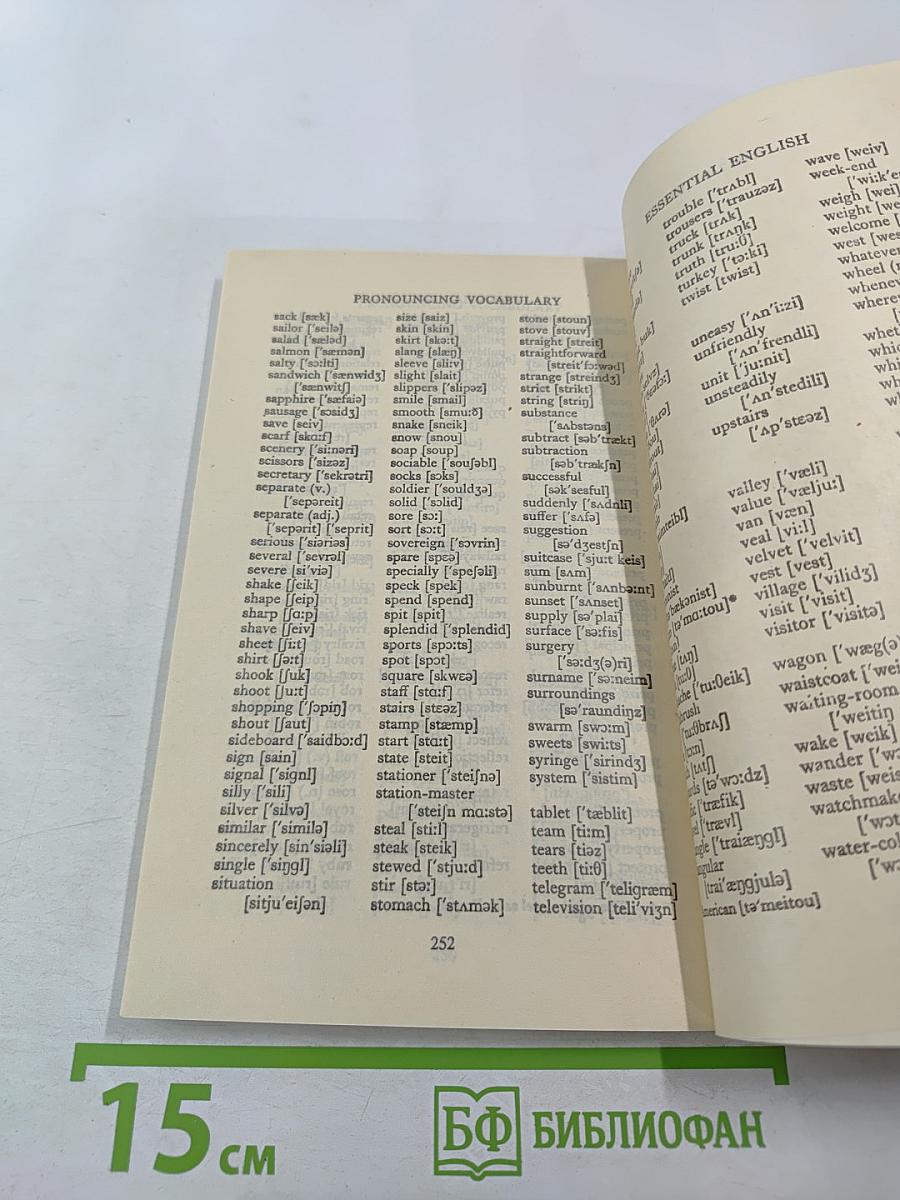 PRONOUNCING VOCABULARY
sack [sæk]
sailor ['seilə]
salad ['sæləd]
salmon ['sæmən]
salty ['sɔːlti]
sandwich ['sænwidʒ]
['sænwitʃ]
sapphire ['sæfaiə]
sausage ['sɔsidʒ]
save [seiv]
scarf [skɑːf]
scenery ['siːnəri]
scissors ['sizəz]
secretary ['sekrətri]
separate (v.)
['sepəreit]
separate (adj.)
['sepərit] ['seprit]
serious ['siəriəs]
several ['sevrəl]
severe [si'viə]
shake [ʃeik]
shape [ʃeip]
sharp [ʃɑːp]
shave [ʃeiv]
sheet [ʃiːt]
shirt [ʃəːt]
shook [ʃuk]
shoot [ʃuːt]
shopping ['ʃɔpiŋ]
shout [ʃaut]
sideboard ['saidbɔːd]
sign [sain]
signal ['signl]
silly ['sili]
silver ['silvə]
similar ['similə]
sincerely [sin'siəli]
single ['siŋgl]
situation
[sitju'eiʃən]
size [saiz]
skin [skin]
skirt [skəːt]
slang [slæŋ]
sleeve [sliːv]
slight [slait]
slippers ['slipəz]
smile [smail]
smooth [smuːð]
snake [sneik]
snow [snou]
soap [soup]
sociable ['souʃəbl]
socks [sɔks]
soldier ['souldʒə]
solid ['sɔlid]
sore [sɔː]
sort [sɔːt]
sovereign ['sɔvrin]
spare [spɛə]
specially ['speʃəli]
speck [spek]
spend [spend]
spit [spit]
splendid ['splendid]
sports [spɔːts]
spot [spɔt]
square [skwɛə]
staff [stɑːf]
stairs [stɛəz]
stamp [stæmp]
start [stɑːt]
state [steit]
stationer ['steiʃnə]
station-master
['steiʃn mɑːstə]
steal [stiːl]
steak [steik]
stewed ['stjuːd]
stir [stəː]
stomach ['stʌmək]
stone [stoun]
stove [stouv]
straight [streit]
straightforward
[streit'fɔːwəd]
strange [streindʒ]
strict [strikt]
string [striŋ]
substance
['sʌbstəns]
subtract [səb'trækt]
subtraction
[səb'trækʃn]
successful
[sək'sesful]
suddenly ['sʌdnli]
suffer ['sʌfə]
suggestion
[sə'dʒestʃn]
suitcase ['sjuːt keis]
sum [sʌm]
sunburnt ['sʌnbəːnt]
sunset ['sʌnset]
supply [sə'plai]
surface ['səːfis]
surgery
['səːdʒ(ə)ri]
surname ['səːneim]
surroundings
[sə'raundiŋz]
swarm [swɔːm]
sweets [swiːts]
syringe ['sirindʒ]
system ['sistim]
tablet ['tæblit]
team [tiːm]
tears [tiəz]
teeth [tiːθ]
telegram ['teligræm]
television [teli'viʒn]
252
ESSENTIAL ENGLISH
trouble ['trʌbl]
trousers ['trauzəz]
truck [trʌk]
trunk [trʌŋk]
truth [truːθ]
turkey ['təːki]
twist [twist]
uneasy ['ʌn'iːzi]
unfriendly
['ʌn'frendli]
unit ['juːnit]
unsteadily
['ʌn'stedili]
upstairs
['ʌp'stɛəz]
valley ['væli]
value ['væljuː]
van [væn]
veal [viːl]
velvet ['velvit]
vest [vest]
village ['vilidʒ]
visit ['visit]
visitor ['visitə]
wagon ['wæg(ə)
waistcoat ['wei
waiting-room
['weitiŋ
wake [weik]
wander ['wɔ
waste [weis
watchmake
['wɔt
water-col
['wɔ
wave [weiv]
week-end
['wiːk'e
weigh [wei]
weight [we
welcome [
west [wes
whatever
wheel (
whenev
wherev
whet
whic
whi
15 см
БФ БИБЛИОФАН